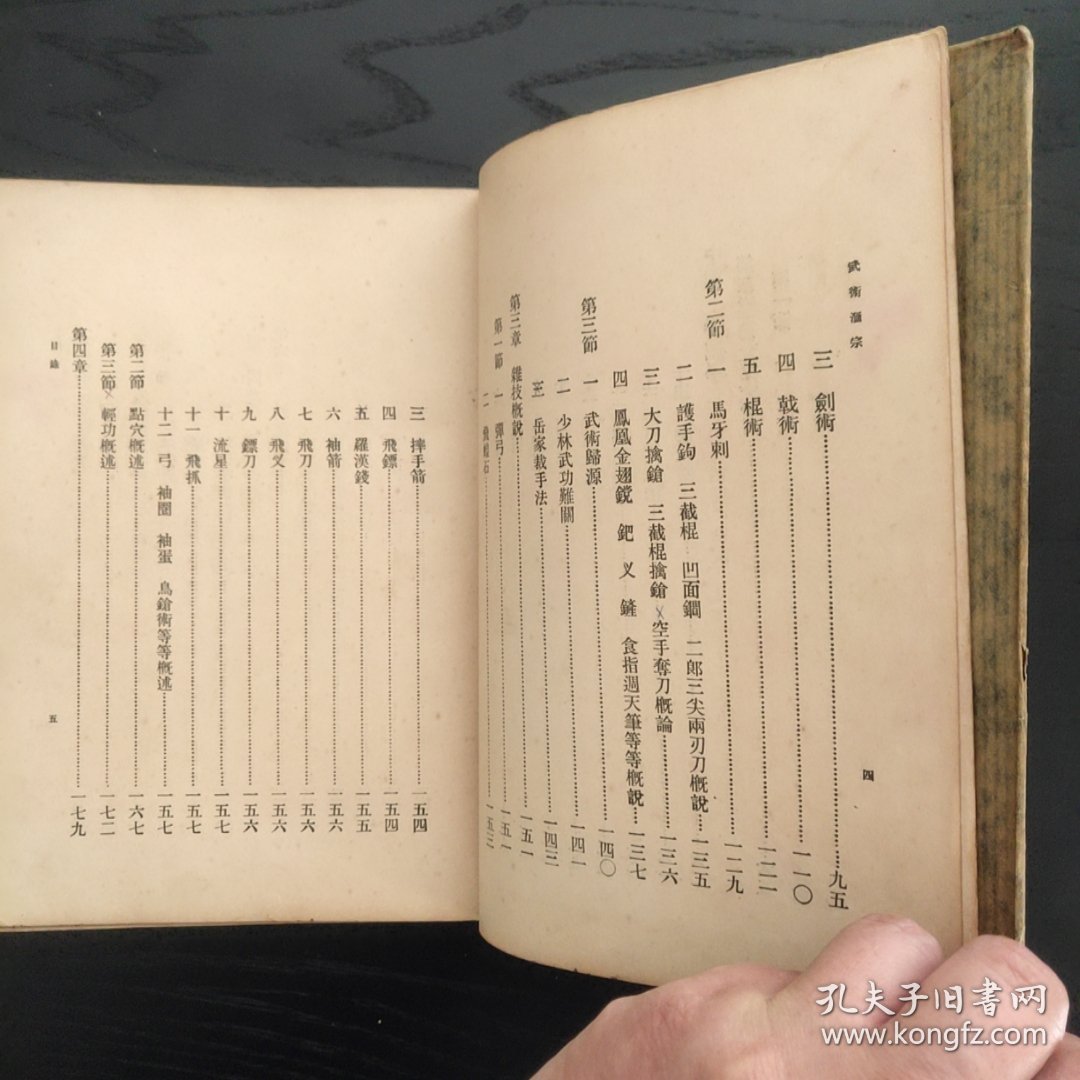 武術滙宗
三 劍術……九五
四 戟術……一一〇
五 棍術……一二一
第二節
一 馬牙刺……一二九
二 護手鉤 三截棍 凹面鐧 二郎三尖兩刃刀概說……一三五
三 大刀擒鎗 三截棍擒鎗 空手奪刀概論……一三六
四 鳳凰金翅鎲 鈀 叉 鏟 食指週天筆等等概說……一三七
第三節
一 武術歸源……一四〇
二 少林武功難關……一四一
三 岳家裁手法……一四三
第三章 雜技概說……一五一
第一節 一 彈弓……一五一
二 飛蝗石……一五三
四
三 摔手箭……一五四
四 飛鏢……一五四
五 羅漢錢……一五五
六 袖箭……一五六
七 飛刀……一五六
八 飛叉……一五六
九 鏢刀……一五六
十 流星……一五七
十一 飛抓……一五七
十二 弓 袖圈 袖蛋 鳥鎗術等等概述……一五七
第二節 點穴概述……一六七
第三節 輕功概述……一七二
第四章……一七九
目錄
五
孔夫子旧書网
www.kongfz.com